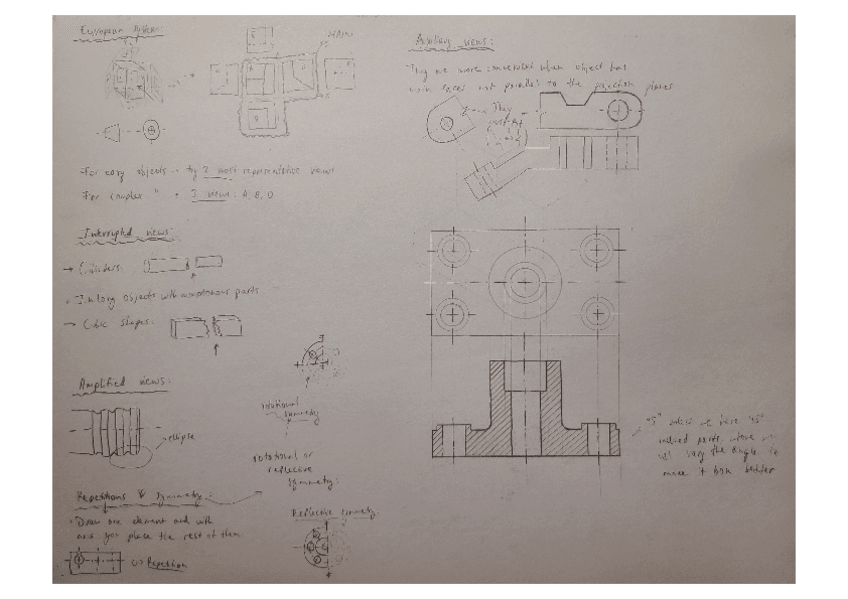 European system:
For easy objects → try 2 most representative views
For complex " → 3 views: A, B, D
Interrupted views:
→ Cilinders:
In long objects with monotonous parts
→ Cubic shapes:
Amplified views:
ellipse
Repetitions & Symmetry:
Draw one element and with
axis you place the rest of them
Repetition
rotational
symmetry
rotational or
reflective
symmetry:
Reflective symmetry:
Auxiliary views:
They are more convenient when object has
main faces not parallel to the projection planes
They
unless we have 45°
inclined parts, where we
will vary the angle to
make it look better